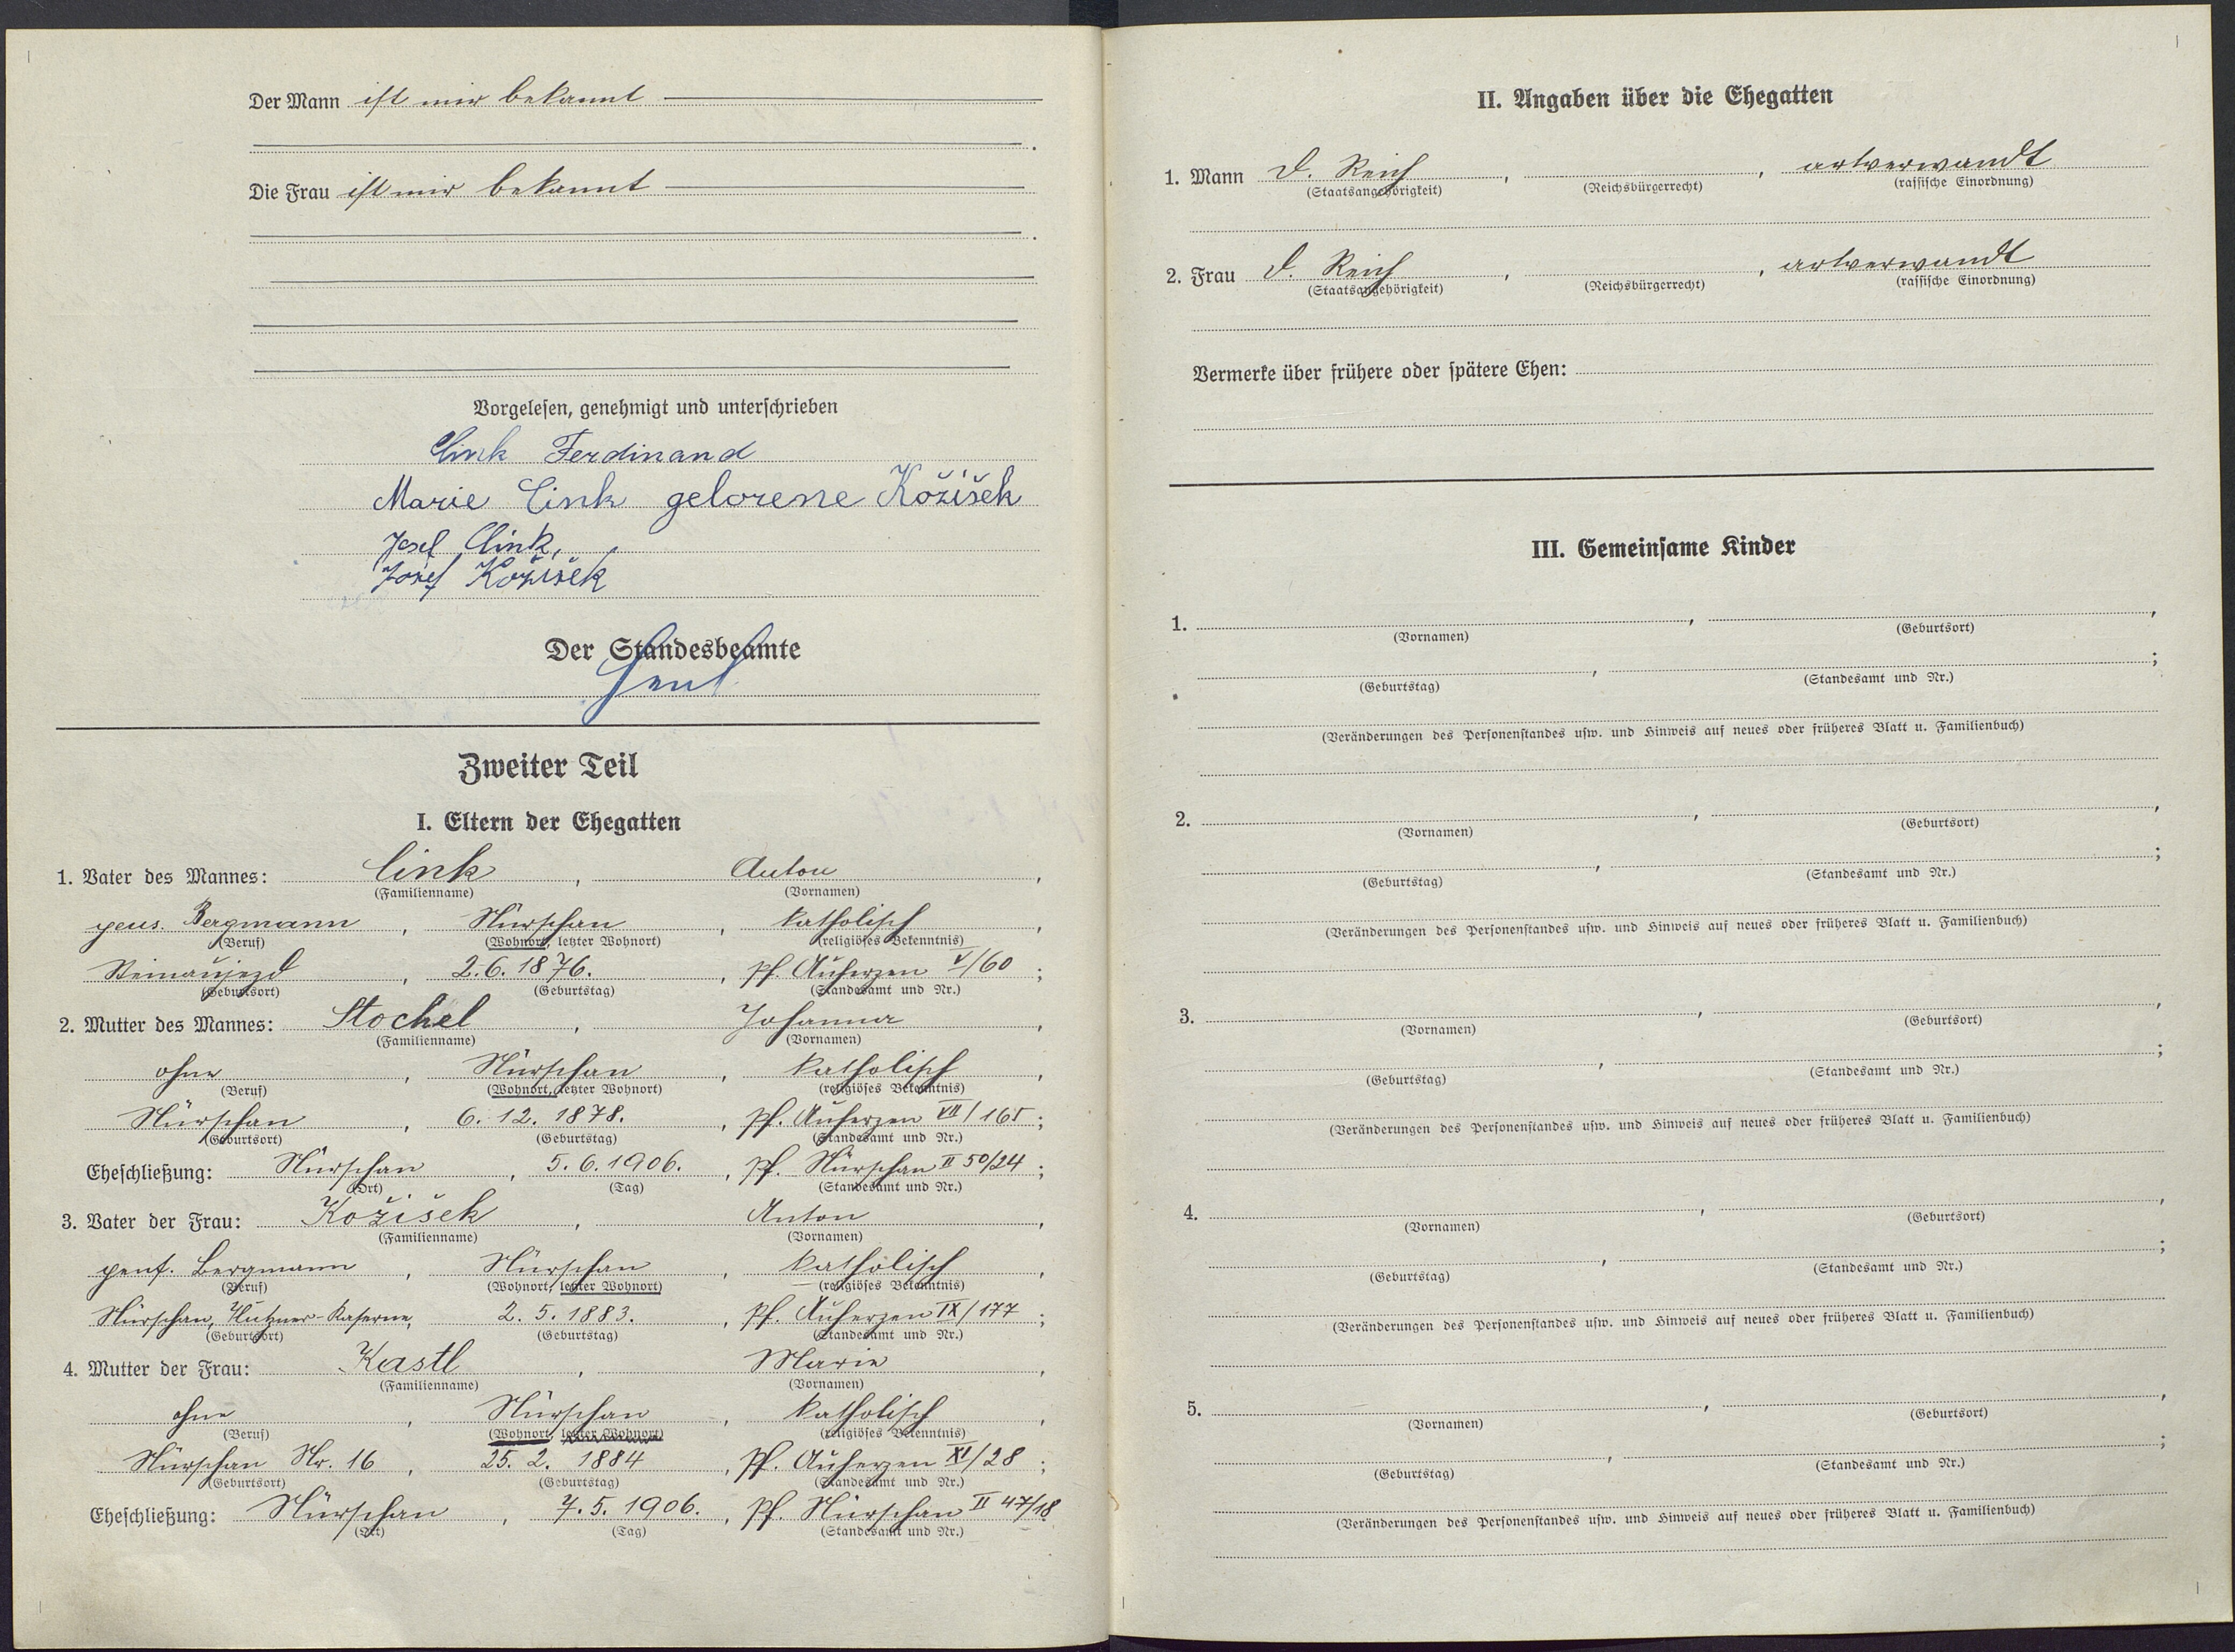 Der Mann ist mir bekannt
Die Frau ist mir bekannt
Vorgelesen, genehmigt und unterschrieben
Cink Ferdinand
Marie Cink geborene Kožíšek
Josef Cink,
Josef Kožíšek
Der Standesbeamte
Zweiter Teil
I. Eltern der Ehegatten
1. Vater des Mannes: Cink, Anton,
(Familienname) (Vornamen)
pens. Bergmann, Nürschan, katholisch,
(Beruf) (Wohnort, letzter Wohnort) (religiöses Bekenntnis)
Steinaujezd, 2.6.1876., Pf. Auherzen V/60;
(Geburtsort) (Geburtstag) (Standesamt und Nr.)
2. Mutter des Mannes: Stochel, Johanna,
(Familienname) (Vornamen)
ohne, Nürschan, katholisch,
(Beruf) (Wohnort, letzter Wohnort) (religiöses Bekenntnis)
Nürschan, 6.12.1878., Pf. Auherzen VII/165;
(Geburtsort) (Geburtstag) (Standesamt und Nr.)
Eheschließung: Nürschan, 5.6.1906., Pf. Nürschan II 50/24;
(Ort) (Tag) (Standesamt und Nr.)
3. Vater der Frau: Kožíšek, Anton,
(Familienname) (Vornamen)
pens. Bergmann, Nürschan, katholisch,
(Beruf) (Wohnort, letzter Wohnort) (religiöses Bekenntnis)
Nürschan, -Kaserne, 2.5.1883., Pf. Auherzen IX/177;
(Geburtsort) (Geburtstag) (Standesamt und Nr.)
4. Mutter der Frau: Kastl, Marie,
(Familienname) (Vornamen)
ohne, Nürschan, katholisch,
(Beruf) (Wohnort, letzter Wohnort) (religiöses Bekenntnis)
Nürschan Nr. 16, 25.2.1884, Pf. Auherzen XI/28;
(Geburtsort) (Geburtstag) (Standesamt und Nr.)
Eheschließung: Nürschan, 7.5.1906., Pf. Nürschan II 47/18
(Ort) (Tag) (Standesamt und Nr.)
II. Angaben über die Ehegatten
1. Mann D. Reich, , artverwandt
(Staatsangehörigkeit) (Reichsbürgerrecht) (rassische Einordnung)
2. Frau D. Reich, , artverwandt
(Staatsangehörigkeit) (Reichsbürgerrecht) (rassische Einordnung)
Vermerke über frühere oder spätere Ehen:
III. Gemeinsame Kinder
1. , ,
(Vornamen) (Geburtsort)
, ;
(Geburtstag) (Standesamt und Nr.)
(Veränderungen des Personenstandes usw. und Hinweis auf neues oder früheres Blatt u. Familienbuch)
2. , ,
(Vornamen) (Geburtsort)
, ;
(Geburtstag) (Standesamt und Nr.)
(Veränderungen des Personenstandes usw. und Hinweis auf neues oder früheres Blatt u. Familienbuch)
3. , ,
(Vornamen) (Geburtsort)
, ;
(Geburtstag) (Standesamt und Nr.)
(Veränderungen des Personenstandes usw. und Hinweis auf neues oder früheres Blatt u. Familienbuch)
4. , ,
(Vornamen) (Geburtsort)
, ;
(Geburtstag) (Standesamt und Nr.)
(Veränderungen des Personenstandes usw. und Hinweis auf neues oder früheres Blatt u. Familienbuch)
5. , ,
(Vornamen) (Geburtsort)
, ;
(Geburtstag) (Standesamt und Nr.)
(Veränderungen des Personenstandes usw. und Hinweis auf neues oder früheres Blatt u. Familienbuch)